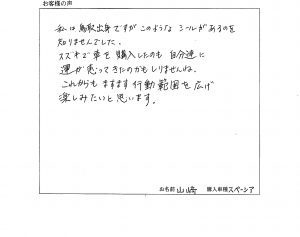 お客様の声
私は鳥取出身ですがこのような シールがあるのを
知りませんでした。
スズキで車を購入したのも 自分達に
運が 思ってきたのかもしりませんね。
これからも ますます 行動範囲を広げ
楽しみたいと思います。
お名前 山崎 購入車種 スペーシア